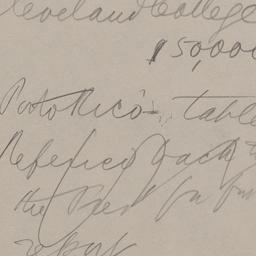 Cleveland College
$50,000
Porto Rico - table
Refer back to
the Pres for fur
report